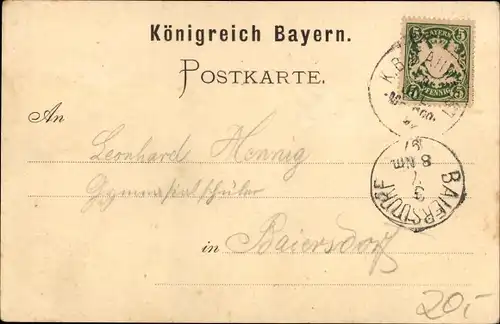 Königreich Bayern.
POSTKARTE.
BAYERN
5 5
PFENNIG
An
Leonhard Hennig
Gymnasialschüler
in Baiersdorf
K.B.
BAIERSDORF
8 Nm
7
97
20,-